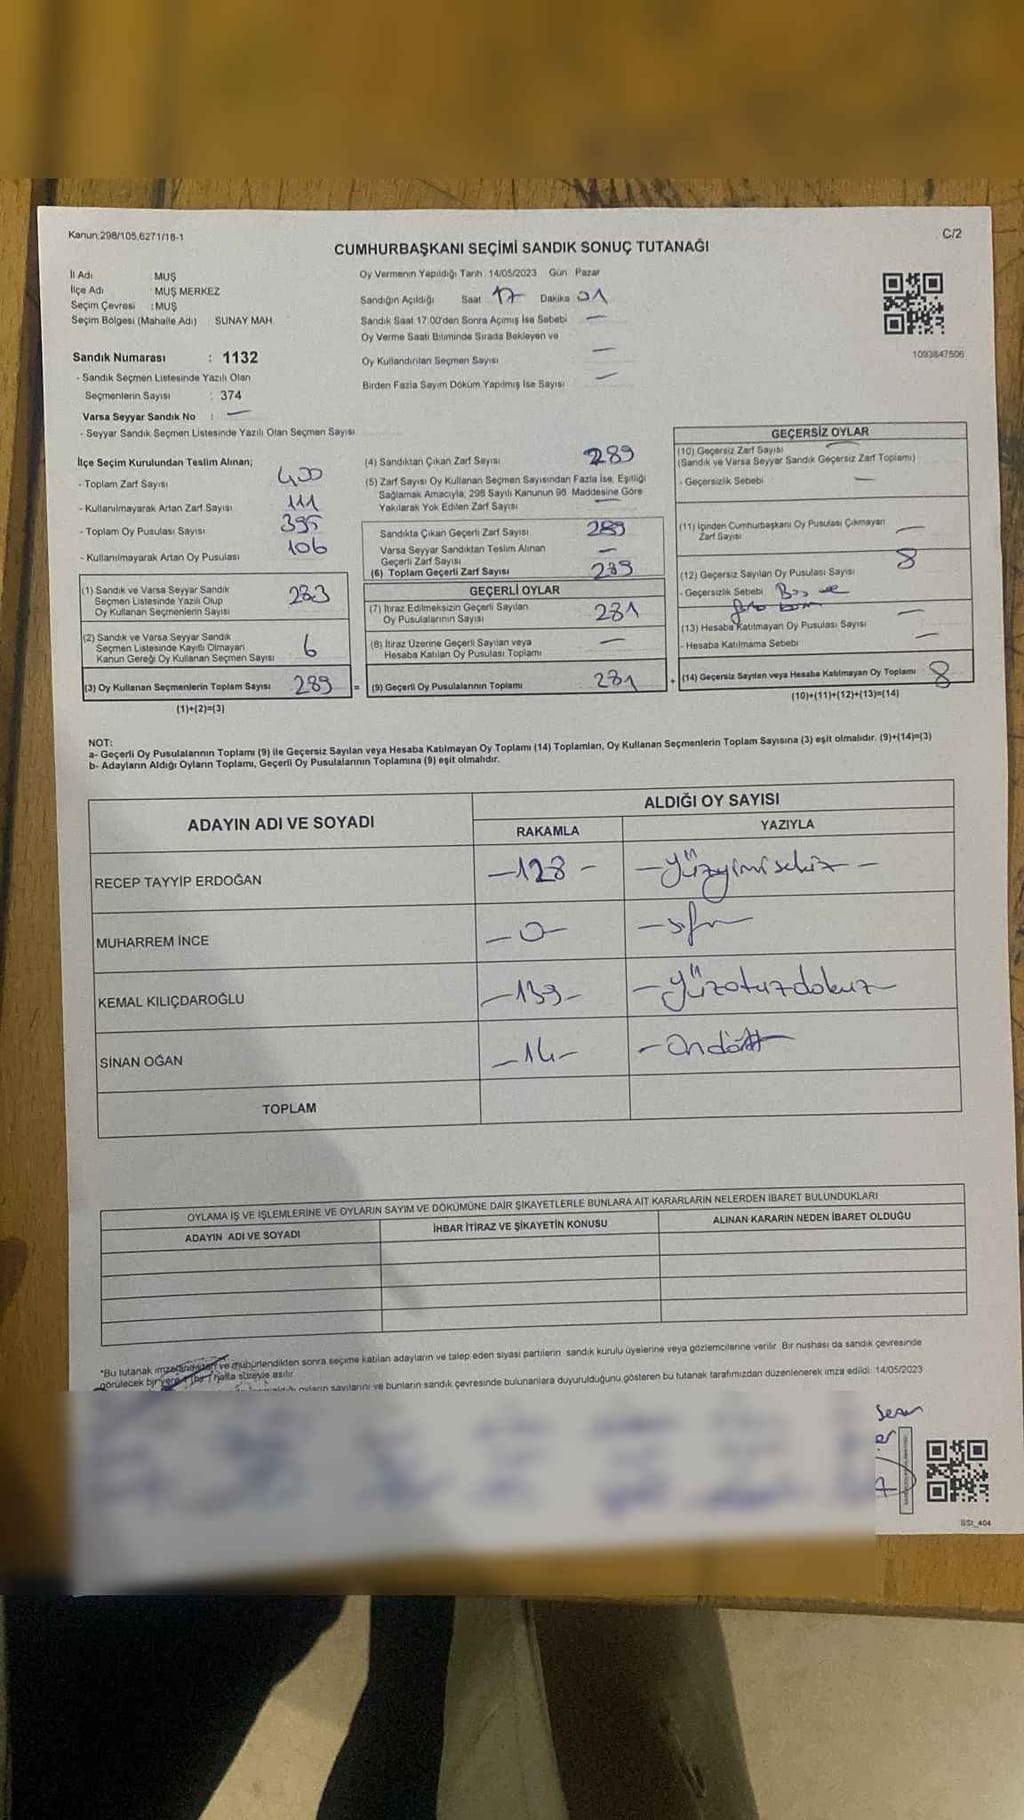 Kanun:298/105,6271/18-1
C/2
CUMHURBAŞKANI SEÇİMİ SANDIK SONUÇ TUTANAĞI
İl Adı MUŞ
İlçe Adı MUŞ MERKEZ
Seçim Çevresi :MUŞ
Seçim Bölgesi (Mahalle Adı) SUNAY MAH.
Oy Vermenin Yapıldığı Tarih 14/05/2023 Gün Pazar
Sandığın Açıldığı Saat 17 Dakika 01
Sandık Saat 17:00'den Sonra Açımış İse Sebebi —
Oy Verme Saati Bitiminde Sırada Bekleyen ve
Oy Kullandırılan Seçmen Sayısı —
Birden Fazla Sayım Döküm Yapılmış İse Sayısı —
1093847506
Sandık Numarası : 1132
- Sandık Seçmen Listesinde Yazılı Olan
Seçmenlerin Sayısı : 374
Varsa Seyyar Sandık No : —
- Seyyar Sandık Seçmen Listesinde Yazılı Olan Seçmen Sayısı
İlçe Seçim Kurulundan Teslim Alınan;
- Toplam Zarf Sayısı 400
- Kullanılmayarak Artan Zarf Sayısı 111
- Toplam Oy Pusulası Sayısı 395
- Kullanılmayarak Artan Oy Pusulası 106
(1) Sandık ve Varsa Seyyar Sandık
Seçmen Listesinde Yazılı Olup
Oy Kullanan Seçmenlerin Sayısı 283
(2) Sandık ve Varsa Seyyar Sandık
Seçmen Listesinde Kayıtlı Olmayan
Kanun Gereği Oy Kullanan Seçmen Sayısı 6
(3) Oy Kullanan Seçmenlerin Toplam Sayısı 289
(1)+(2)=(3)
(4) Sandıktan Çıkan Zarf Sayısı 289
(5) Zarf Sayısı Oy Kullanan Seçmen Sayısından Fazla İse, Eşitliği
Sağlamak Amacıyla, 298 Sayılı Kanunun 98. Maddesine Göre
Yakılarak Yok Edilen Zarf Sayısı —
Sandıkta Çıkan Geçerli Zarf Sayısı 289
Varsa Seyyar Sandıktan Teslim Alınan
Geçerli Zarf Sayısı —
(6) Toplam Geçerli Zarf Sayısı 289
GEÇERLİ OYLAR
(7) İtiraz Edilmeksizin Geçerli Sayılan
Oy Pusulalarının Sayısı 281
(8) İtiraz Üzerine Geçerli Sayılan veya
Hesaba Katılan Oy Pusulası Toplamı —
= (9) Geçerli Oy Pusulalarının Toplamı 281
GEÇERSİZ OYLAR
(10) Geçersiz Zarf Sayısı —
(Sandık ve Varsa Seyyar Sandık Geçersiz Zarf Toplamı)
- Geçersizlik Sebebi —
(11) İçinden Cumhurbaşkanı Oy Pusulası Çıkmayan
Zarf Sayısı —
(12) Geçersiz Sayılan Oy Pusulası Sayısı 8
- Geçersizlik Sebebi Boş ve
(13) Hesaba Katılmayan Oy Pusulası Sayısı —
- Hesaba Katılmama Sebebi —
+ (14) Geçersiz Sayılan veya Hesaba Katılmayan Oy Toplamı 8
(10)+(11)+(12)+(13)=(14)
NOT:
a- Geçerli Oy Pusulalarının Toplamı (9) ile Geçersiz Sayılan veya Hesaba Katılmayan Oy Toplamı (14) Toplamları, Oy Kullanan Seçmenlerin Toplam Sayısına (3) eşit olmalıdır. (9)+(14)=(3)
b- Adayların Aldığı Oyların Toplamı, Geçerli Oy Pusulalarının Toplamına (9) eşit olmalıdır.
ADAYIN ADI VE SOYADI ALDIĞI OY SAYISI
RAKAMLA YAZIYLA
RECEP TAYYİP ERDOĞAN -128- -yüzyirmisekiz-
MUHARREM İNCE -0- -sıfır-
KEMAL KILIÇDAROĞLU -139- -yüzotuzdokuz-
SİNAN OĞAN -14- -ondört-
TOPLAM
OYLAMA İŞ VE İŞLEMLERİNE VE OYLARIN SAYIM VE DÖKÜMÜNE DAİR ŞİKAYETLERLE BUNLARA AİT KARARLARIN NELERDEN İBARET BULUNDUKLARI
ADAYIN ADI VE SOYADI İHBAR İTİRAZ VE ŞİKAYETİN KONUSU ALINAN KARARIN NEDEN İBARET OLDUĞU
*Bu tutanak imzalandıktan ve mühürlendikten sonra seçime katılan adayların ve talep eden siyasi partilerin sandık kurulu üyelerine veya gözlemcilerine verilir. Bir nushası da sandık çevresinde
görülecek bir yere 1 (bir) hafta süreyle asılır.
oyların sayılarını ve bunların sandık çevresinde bulunanlara duyurulduğunu gösteren bu tutanak tarafımızdan düzenlenerek imza edildi. 14/05/2023